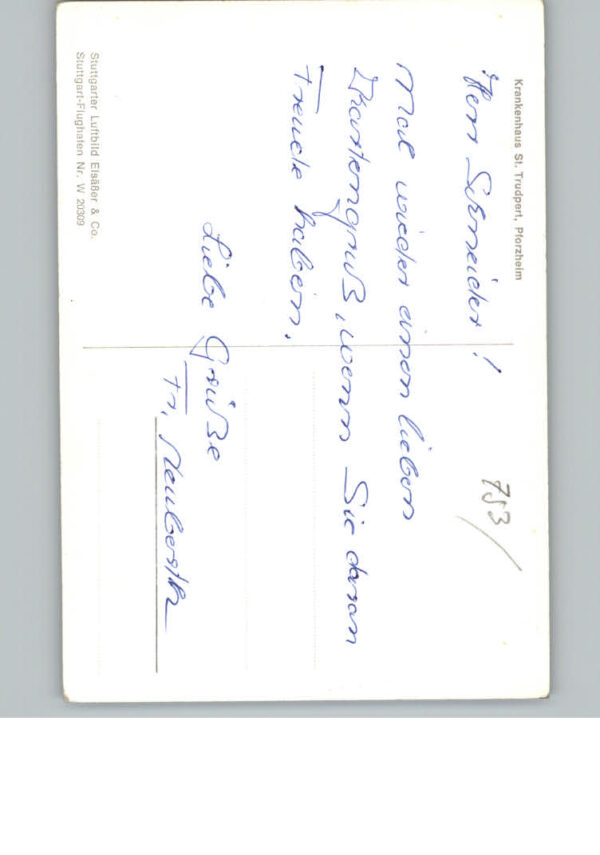 Krankenhaus St. Trudpert, Pforzheim
Herr Schneider!
Mal wieder einen lieben
Kartengruß, wenn Sie daran
Freude haben.
Liebe Grüße
Fr.
753/
Stuttgarter Luftbild Elsäßer & Co.
Stuttgart-Flughafen Nr. W 20309